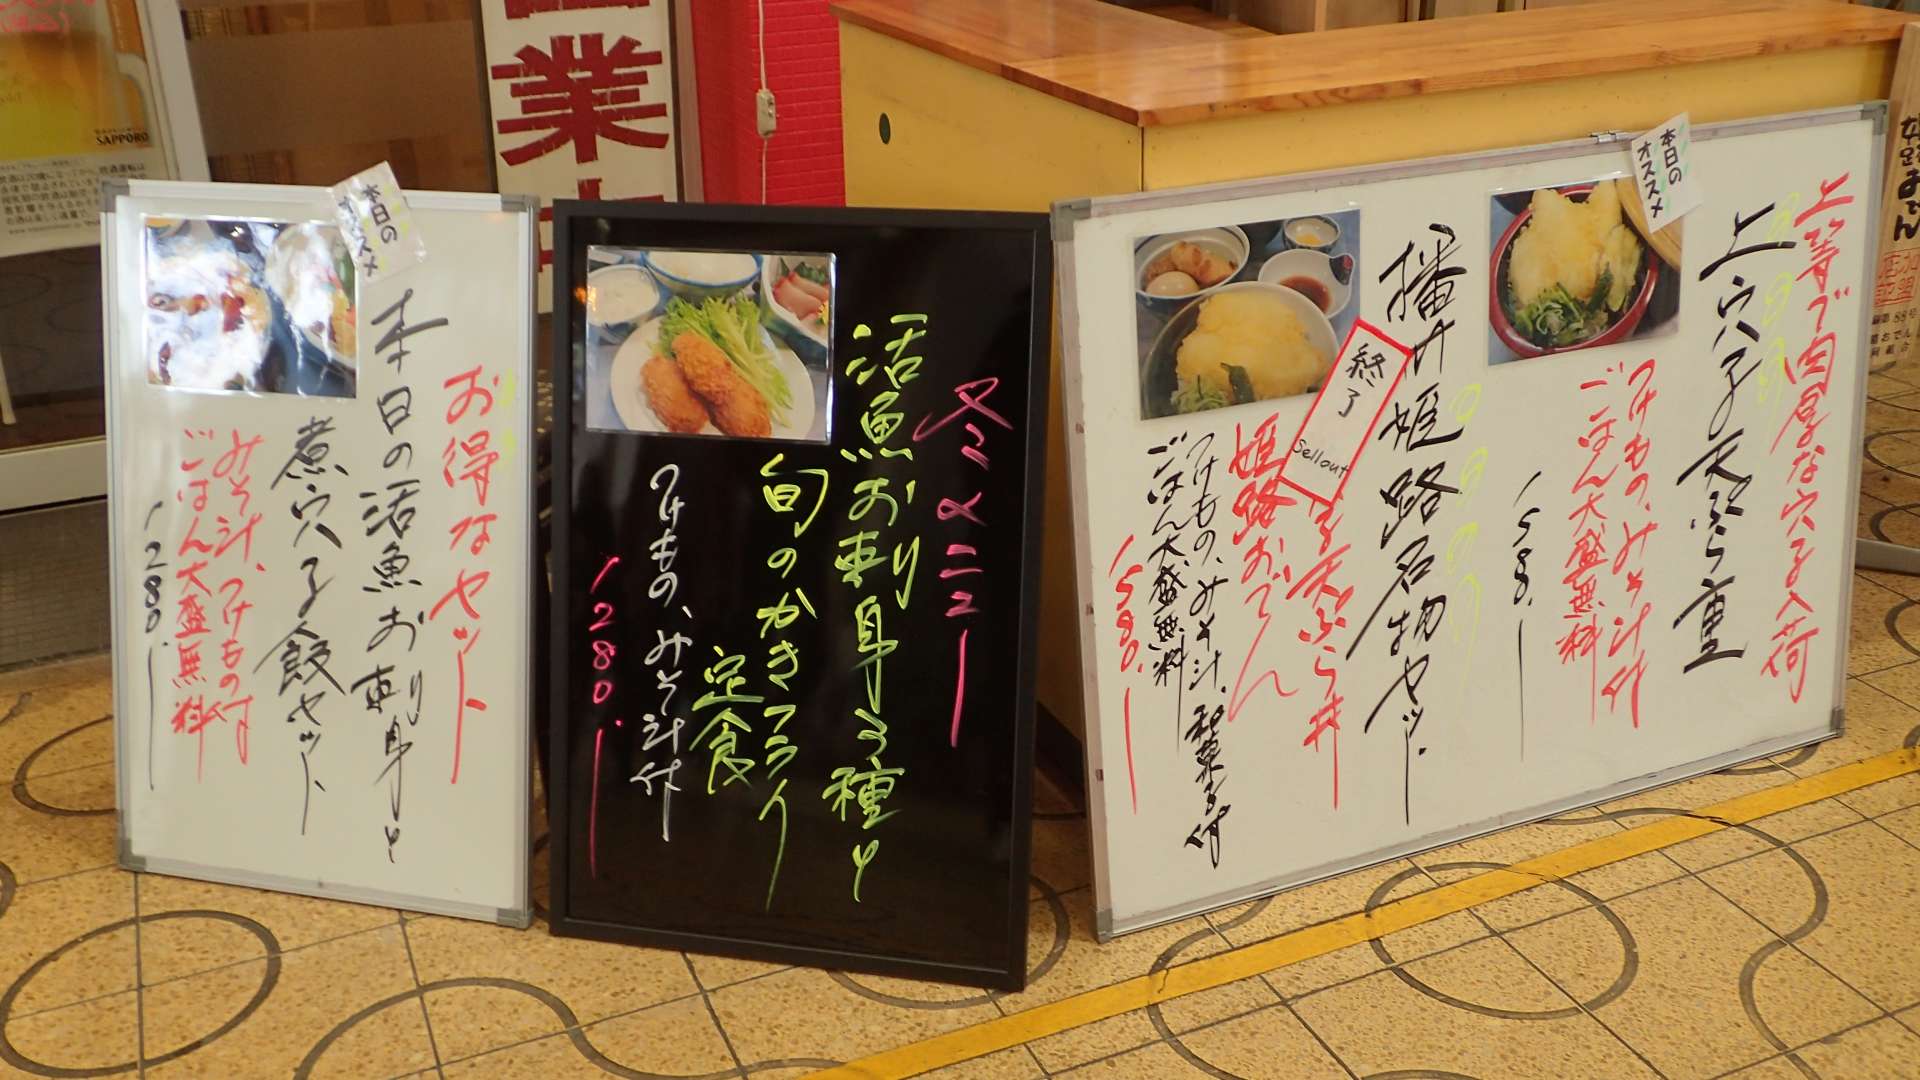 本日の
オススメ
お得なセット
本日の活魚お刺身と
煮穴子飯セット
みそ汁、つけもの付
ごはん大盛無料
1280.-
冬メニュー
活魚お刺身3種と
旬のかきフライ
定食
つけもの、みそ汁付
1280.-
本日の
オススメ
上等で肉厚な穴子入荷
上穴子天ぷら重
つけもの、みそ汁付
ごはん大盛無料
1580.-
播州姫路名物セット
終了
Sellout
子天ぷら丼
姫路おでん
つけもの、みそ汁、和菓子付
ごはん大盛無料
1580.-
業
SAPPORO
姫路おでん
第88号